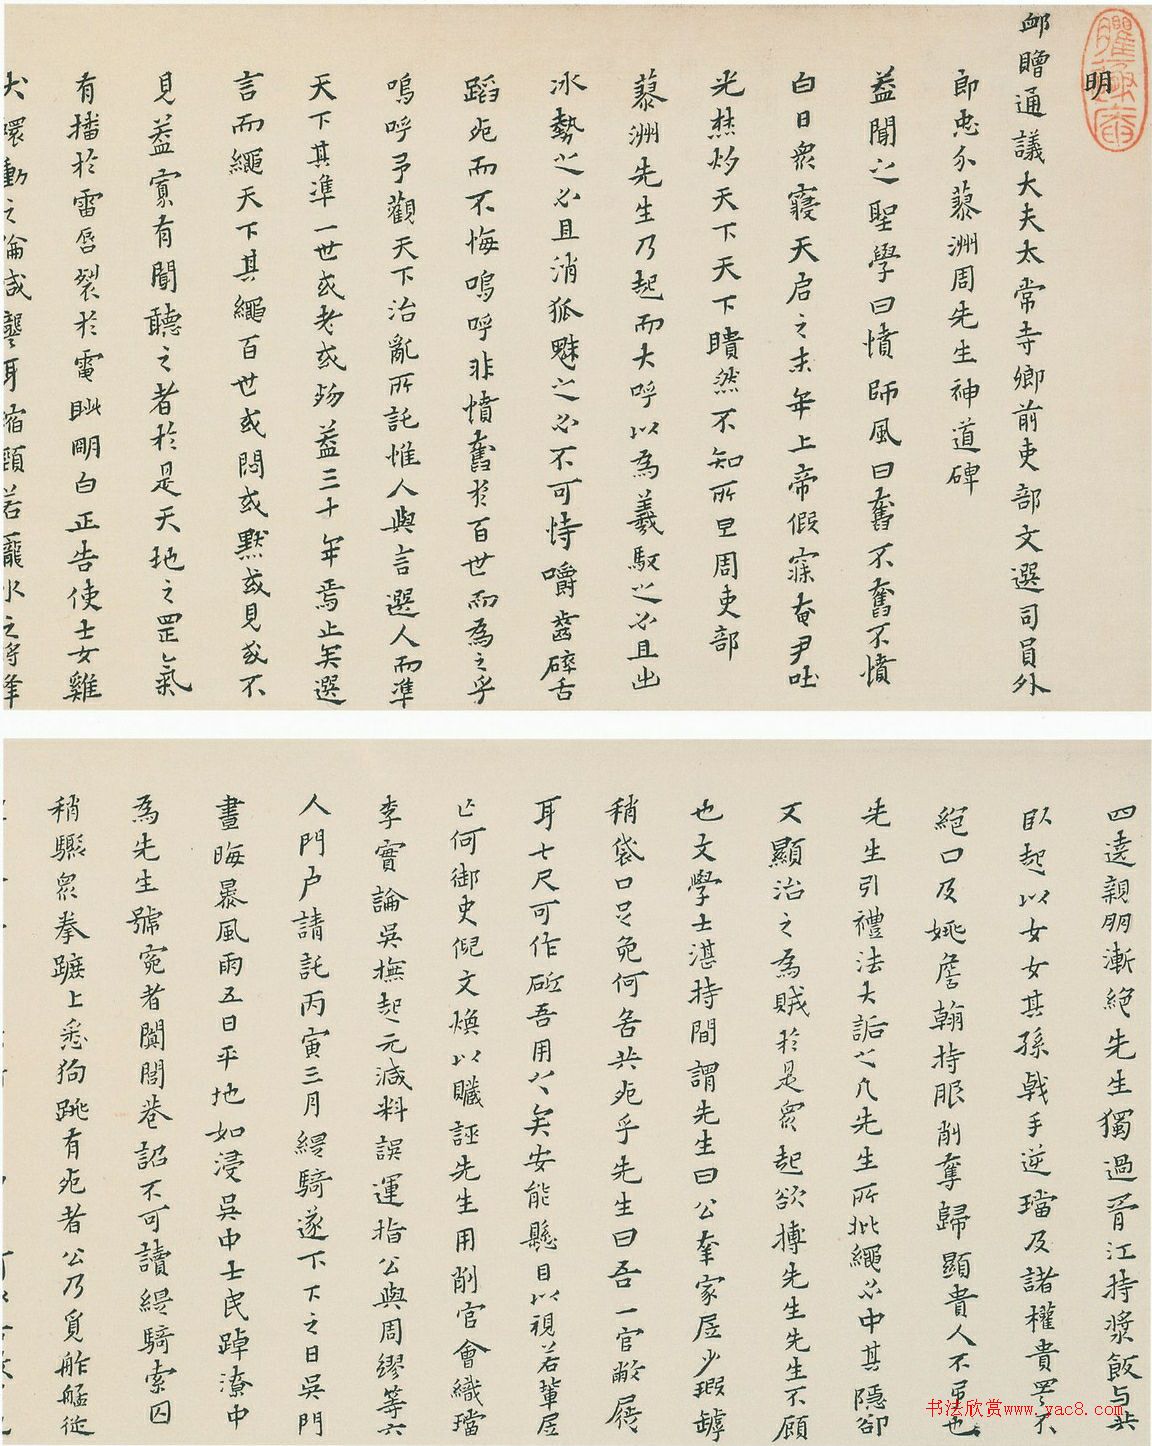 明
卹贈通議大夫太常寺卿前吏部文選司員外
郎忠介蓼洲周先生神道碑
葢聞之聖學曰憤師風曰奮不奮不憤
白日眾寢天启之末年上帝假寐奄尹吐
光焚炒天下天下瞶然不知所里周吏部
蓼洲先生乃起而大呼以為羲馭之必且出
冰勢之必且消狐魅之必不可恃嚼齒碎舌
蹈死而不悔嗚呼非憤奮於百世而為之乎
嗚呼予觀天下治亂所託惟人與言選人而準
天下其準一世或老或殇葢三十年焉止矣選
言而繩天下其繩百世或問或默或見或不
見葢寡有聞聽之者於是天地之罡氣
有播於雷唇裂於電眦明白正告使士女雞
犬環動之倫咸聾耳縮頸若寵水之將
四遠親朋漸絕先生獨過胥江持漿飯与共
臥起以女女其孫戟手逆璫及諸權貴詈不
絕口及姚詹翰持服削奪歸顯貴人不弔也
先生引禮法大詬之凡先生所批繩必中其隱卻
又顯治之為賊於是眾起欲搏先生先生不顧
也文學士湛持間謂先生曰公奎家居少瑕罅
稍袋口足免何苦共死乎先生曰吾一官敝屣
耳七尺可作砥吾用久矣安能懸目以視若輩居
亡何御史倪文煥以贓誣先生用削官會織璫
李實論吳撫起元減料誤運指公與周繆等六
人門户請託丙寅三月緹騎遂下下之日吳門
晝晦暴風雨五日平地如浸吳中士民踔潦中
為先生號寃者闐閭巷詔不可讀緹騎索囚
稍驟眾拳蹠上悉狗跳有死者公乃覓舴艋從
书法欣赏www.yac8.com